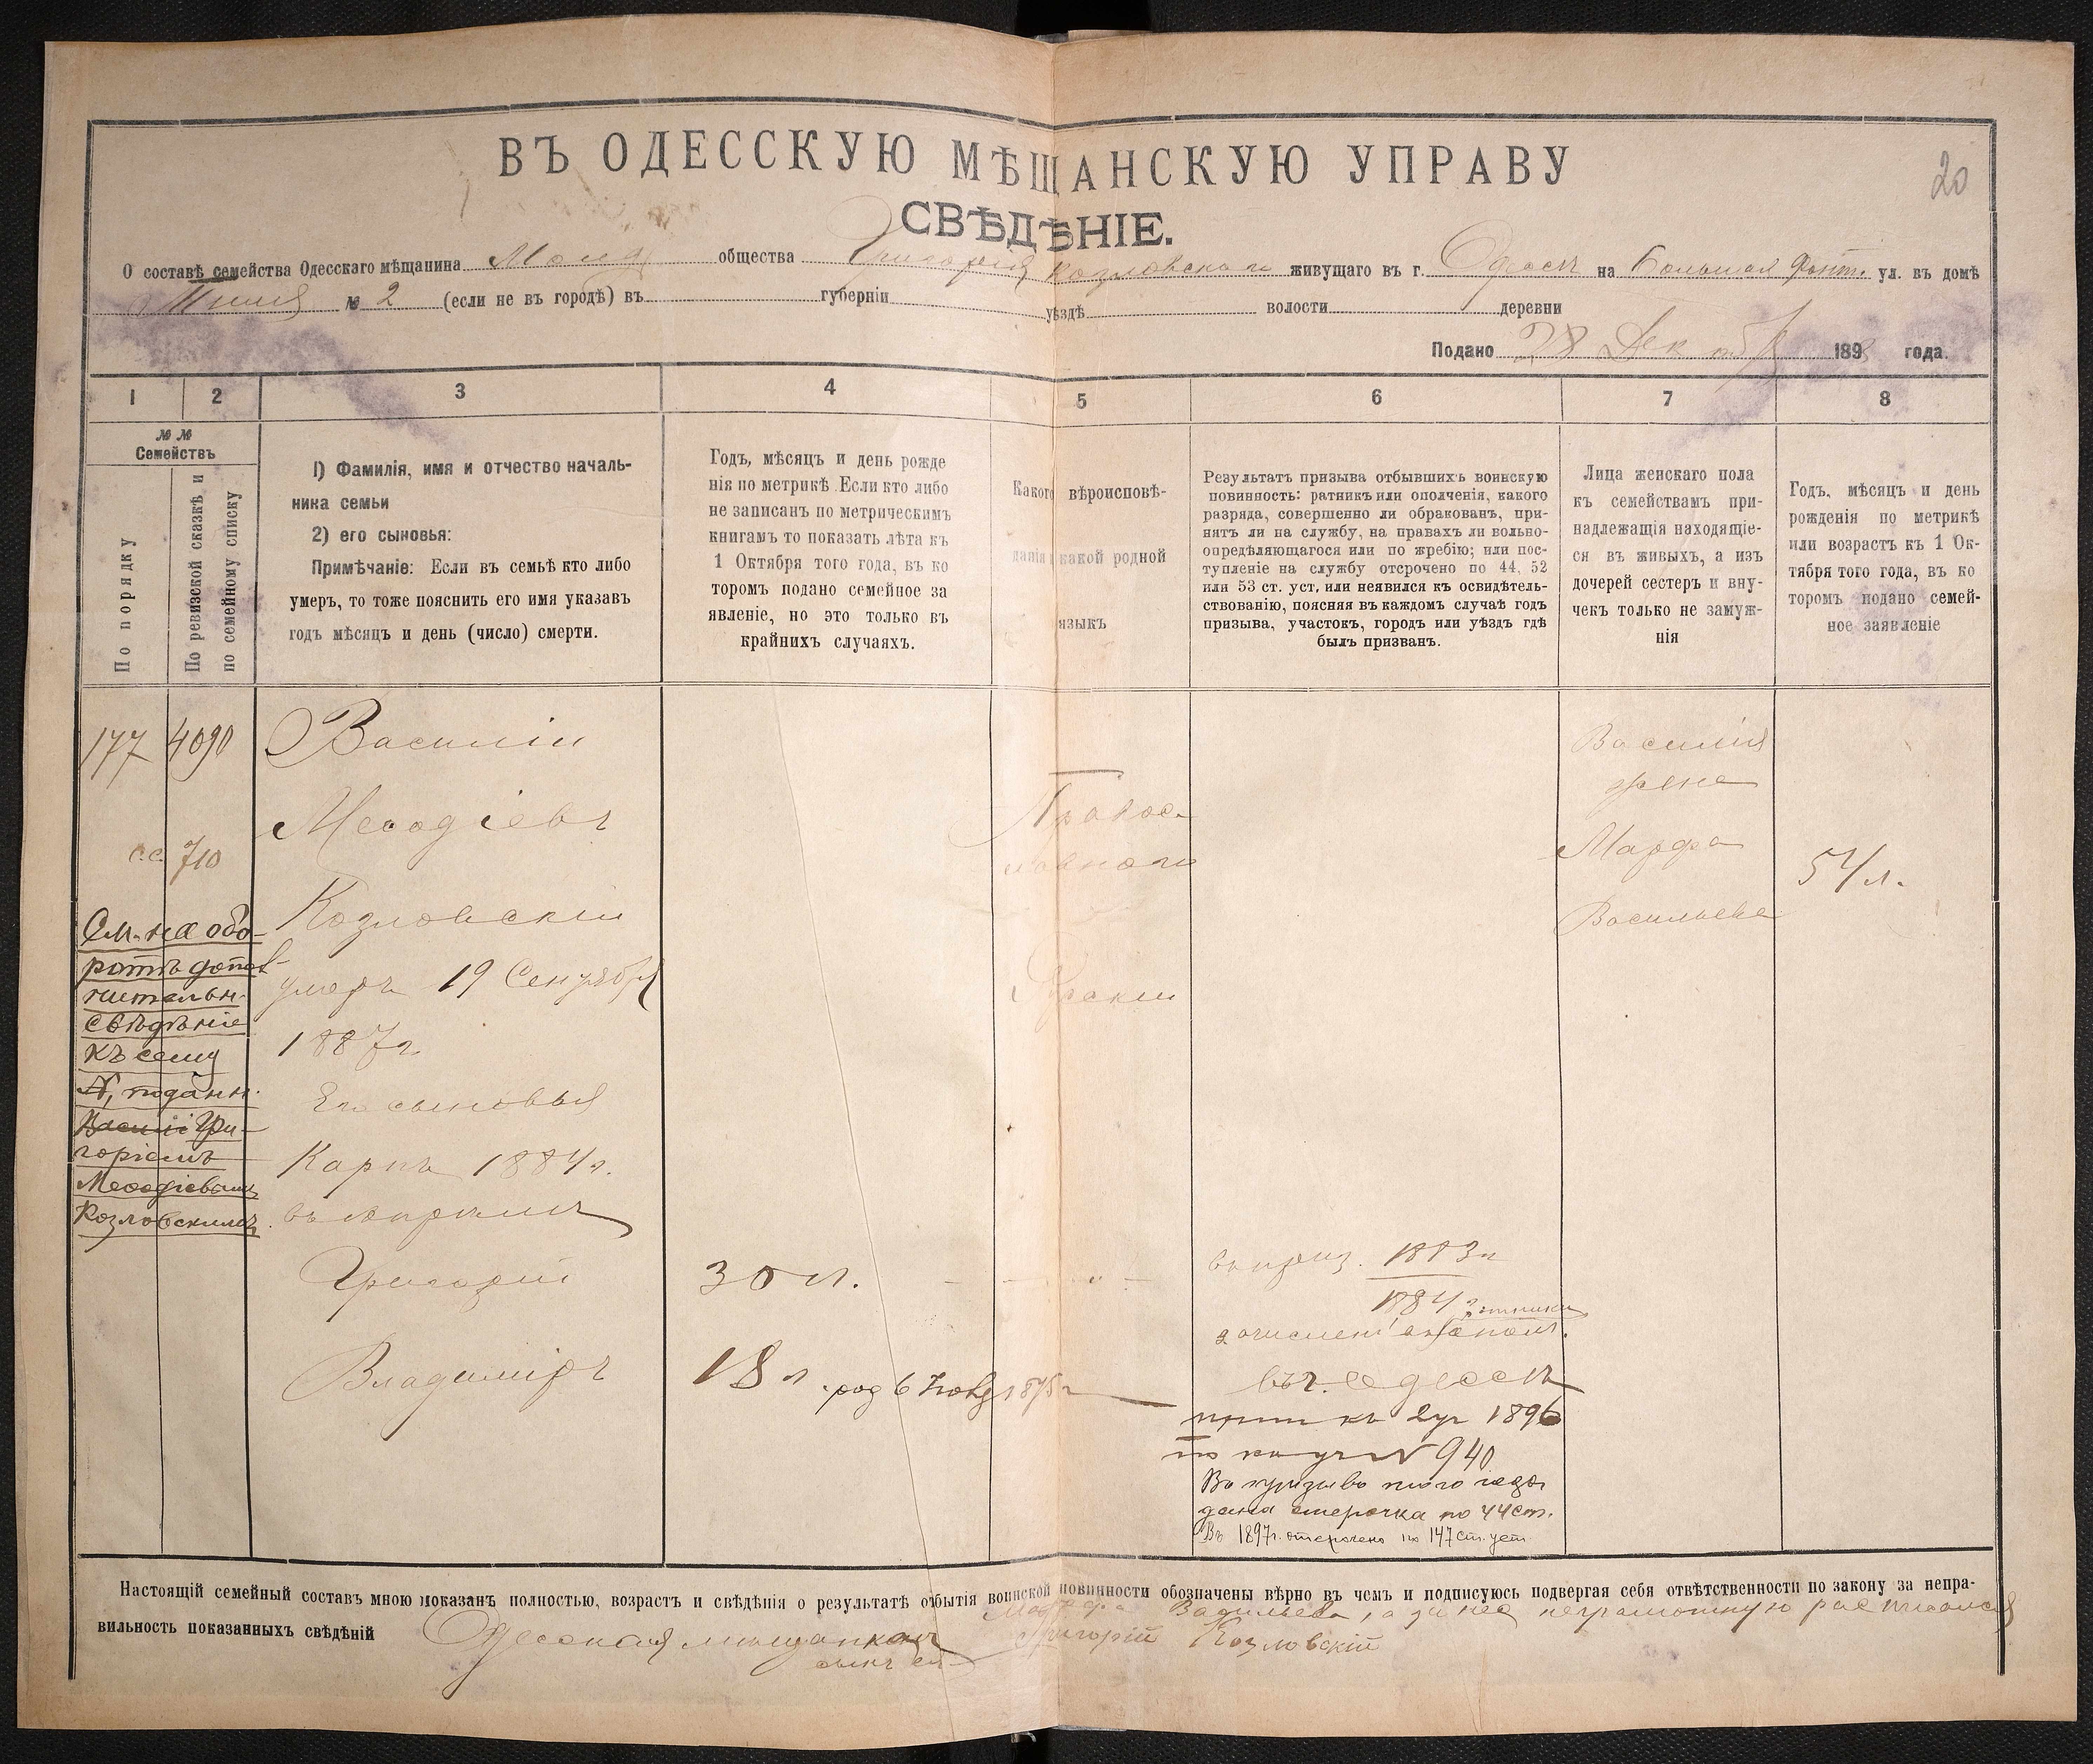 20
ВЪ ОДЕССКУЮ МѢЩАНСКУЮ УПРАВУ
СВѢДѢНІЕ.
О составѣ семейства Одесскаго мѣщанина Молд общества Григорія Козловскаго живущаго въ г. Одессѣ на Большая Фонт. ул. въ домѣ
№ 2 (если не въ городѣ) въ губерніи уѣздѣ волости деревни
Подано 28 189 года.
1 2 3 4 5 6 7 8
№№
Семействъ
По порядку
По ревизской сказкѣ и
по семейному списку
1) Фамилія, имя и отчество началь-
ника семьи
2) его сыновья:
Примѣчаніе: Если въ семьѣ кто либо
умеръ, то тоже пояснить его имя указавъ
годъ мѣсяцъ и день (число) смерти.
Годъ, мѣсяцъ и день рожде
нія по метрикѣ Если кто либо
не записанъ по метрическимъ
книгамъ то показать лѣта къ
1 Октября того года, въ ко
торомъ подано семейное за
явленіе, но это только въ
крайнихъ случаяхъ.
Какого вѣроисповѣ-
данія и какой родной
языкъ
Результатъ призыва отбывшихъ воинскую
повинность: ратникъ или ополченія, какого
разряда, совершенно ли обракованъ, при-
нятъ ли на службу, на правахъ ли вольно-
опредѣляющагося или по жребію; или пос-
тупленіе на службу отсрочено по 44, 52
или 53 ст. уст, или неявился къ освидѣтель-
ствованію, поясняя въ каждомъ случаѣ годъ
призыва, участокъ, городъ или уѣздъ гдѣ
былъ призванъ.
Лица женскаго пола
къ семействамъ при-
надлежащія находящіе-
ся въ живыхъ, а изъ
дочерей сестеръ и вну-
чекъ только не замуж-
нія
Годъ, мѣсяцъ и день
рожденія по метрикѣ
или возрастъ къ 1 Ок-
тября того года, въ ко
торомъ подано семей-
ное заявленіе
177 4090
с.с. 710
См. на обо-
ротѣ допол-
нительн.
свѣдѣніе
къ сему
№, поданн.
Василій Гри-
горіемъ
Меѳодіевымъ
Козловскимъ.
Василій
Меѳодіевъ
Козловскій
умеръ 19 Сентября
1887 г.
Его сыновья
Карпъ 1884 г.
Григорій
Владиміръ
30 л.
18 л. род 6 1875 г
Правос-
лавнаго
Русскій
1883 г
1884 г.
зачисленъ
въ г. Одессѣ
прип къ 2 уч 1896
№ 940
Въ призывъ того года
дана отсрочка по 44 ст.
Въ 1897 г. отсрочено по 147 ст. уст.
Василія
жена
Марфа
Васильева
54 л.
Настоящій семейный составъ мною показанъ полностью, возрастъ и свѣдѣнія о результатѣ отбытія воинской повинности обозначены вѣрно въ чемъ и подписуюсь подвергая себя отвѣтственности по закону за непра-
вильность показанныхъ свѣдѣній Одесская мѣщанка Марфа Васильева, а за нея неграмотную росписался
сынъ ея Григорій Козловскій